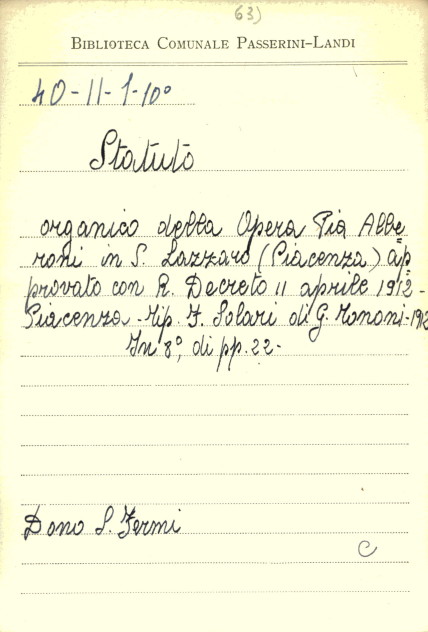 63)
BIBLIOTECA COMUNALE PASSERINI-LANDI
40-11-1-10°
Statuto
organico della Opera Pia Albe=
roni in S. Lazzaro (Piacenza) ap=
provato con R. Decreto 11 aprile 1912-
Piacenza-Tip. F. Solari di G. Tononi-1912
In 8°, di pp. 22-
Dono S. Fermi
C